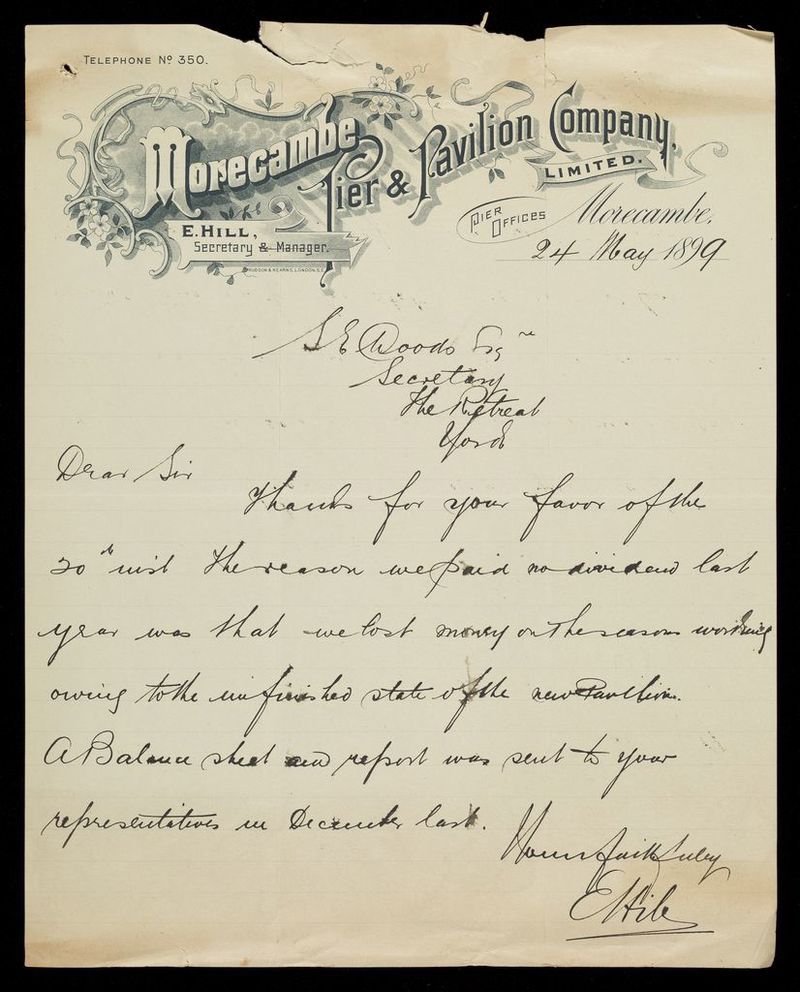 TELEPHONE Nº 350.
Morecambe Pier & Pavilion Company,
LIMITED.
E. HILL,
Secretary & Manager.
HUDSON & KEARNS, LONDON, S.E.
PIER OFFICES
Morecambe,
24 May 1899
S E Woods Esqre
Secretary
The Retreat
York
Dear Sir
Thanks for your favor of the
20th inst The reason we paid no dividend last
year was that we lost money on the seasons working
owing to the unfinished state of the new Pavilion.
A Balance sheet and report was sent to your
representatives in December last.
Yours faithfully
E Hill